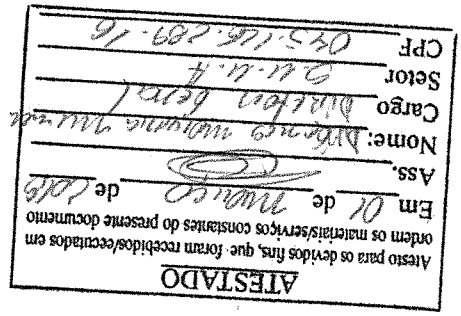 ATESTADO
Atesto para os devidos fins, que foram recebidos/executados em
ordem os materiais/serviços constantes do presente documento
Em 01 de março de
Ass.
Nome:
Cargo Diretor Geral
Setor
CPF 045.116.289-16